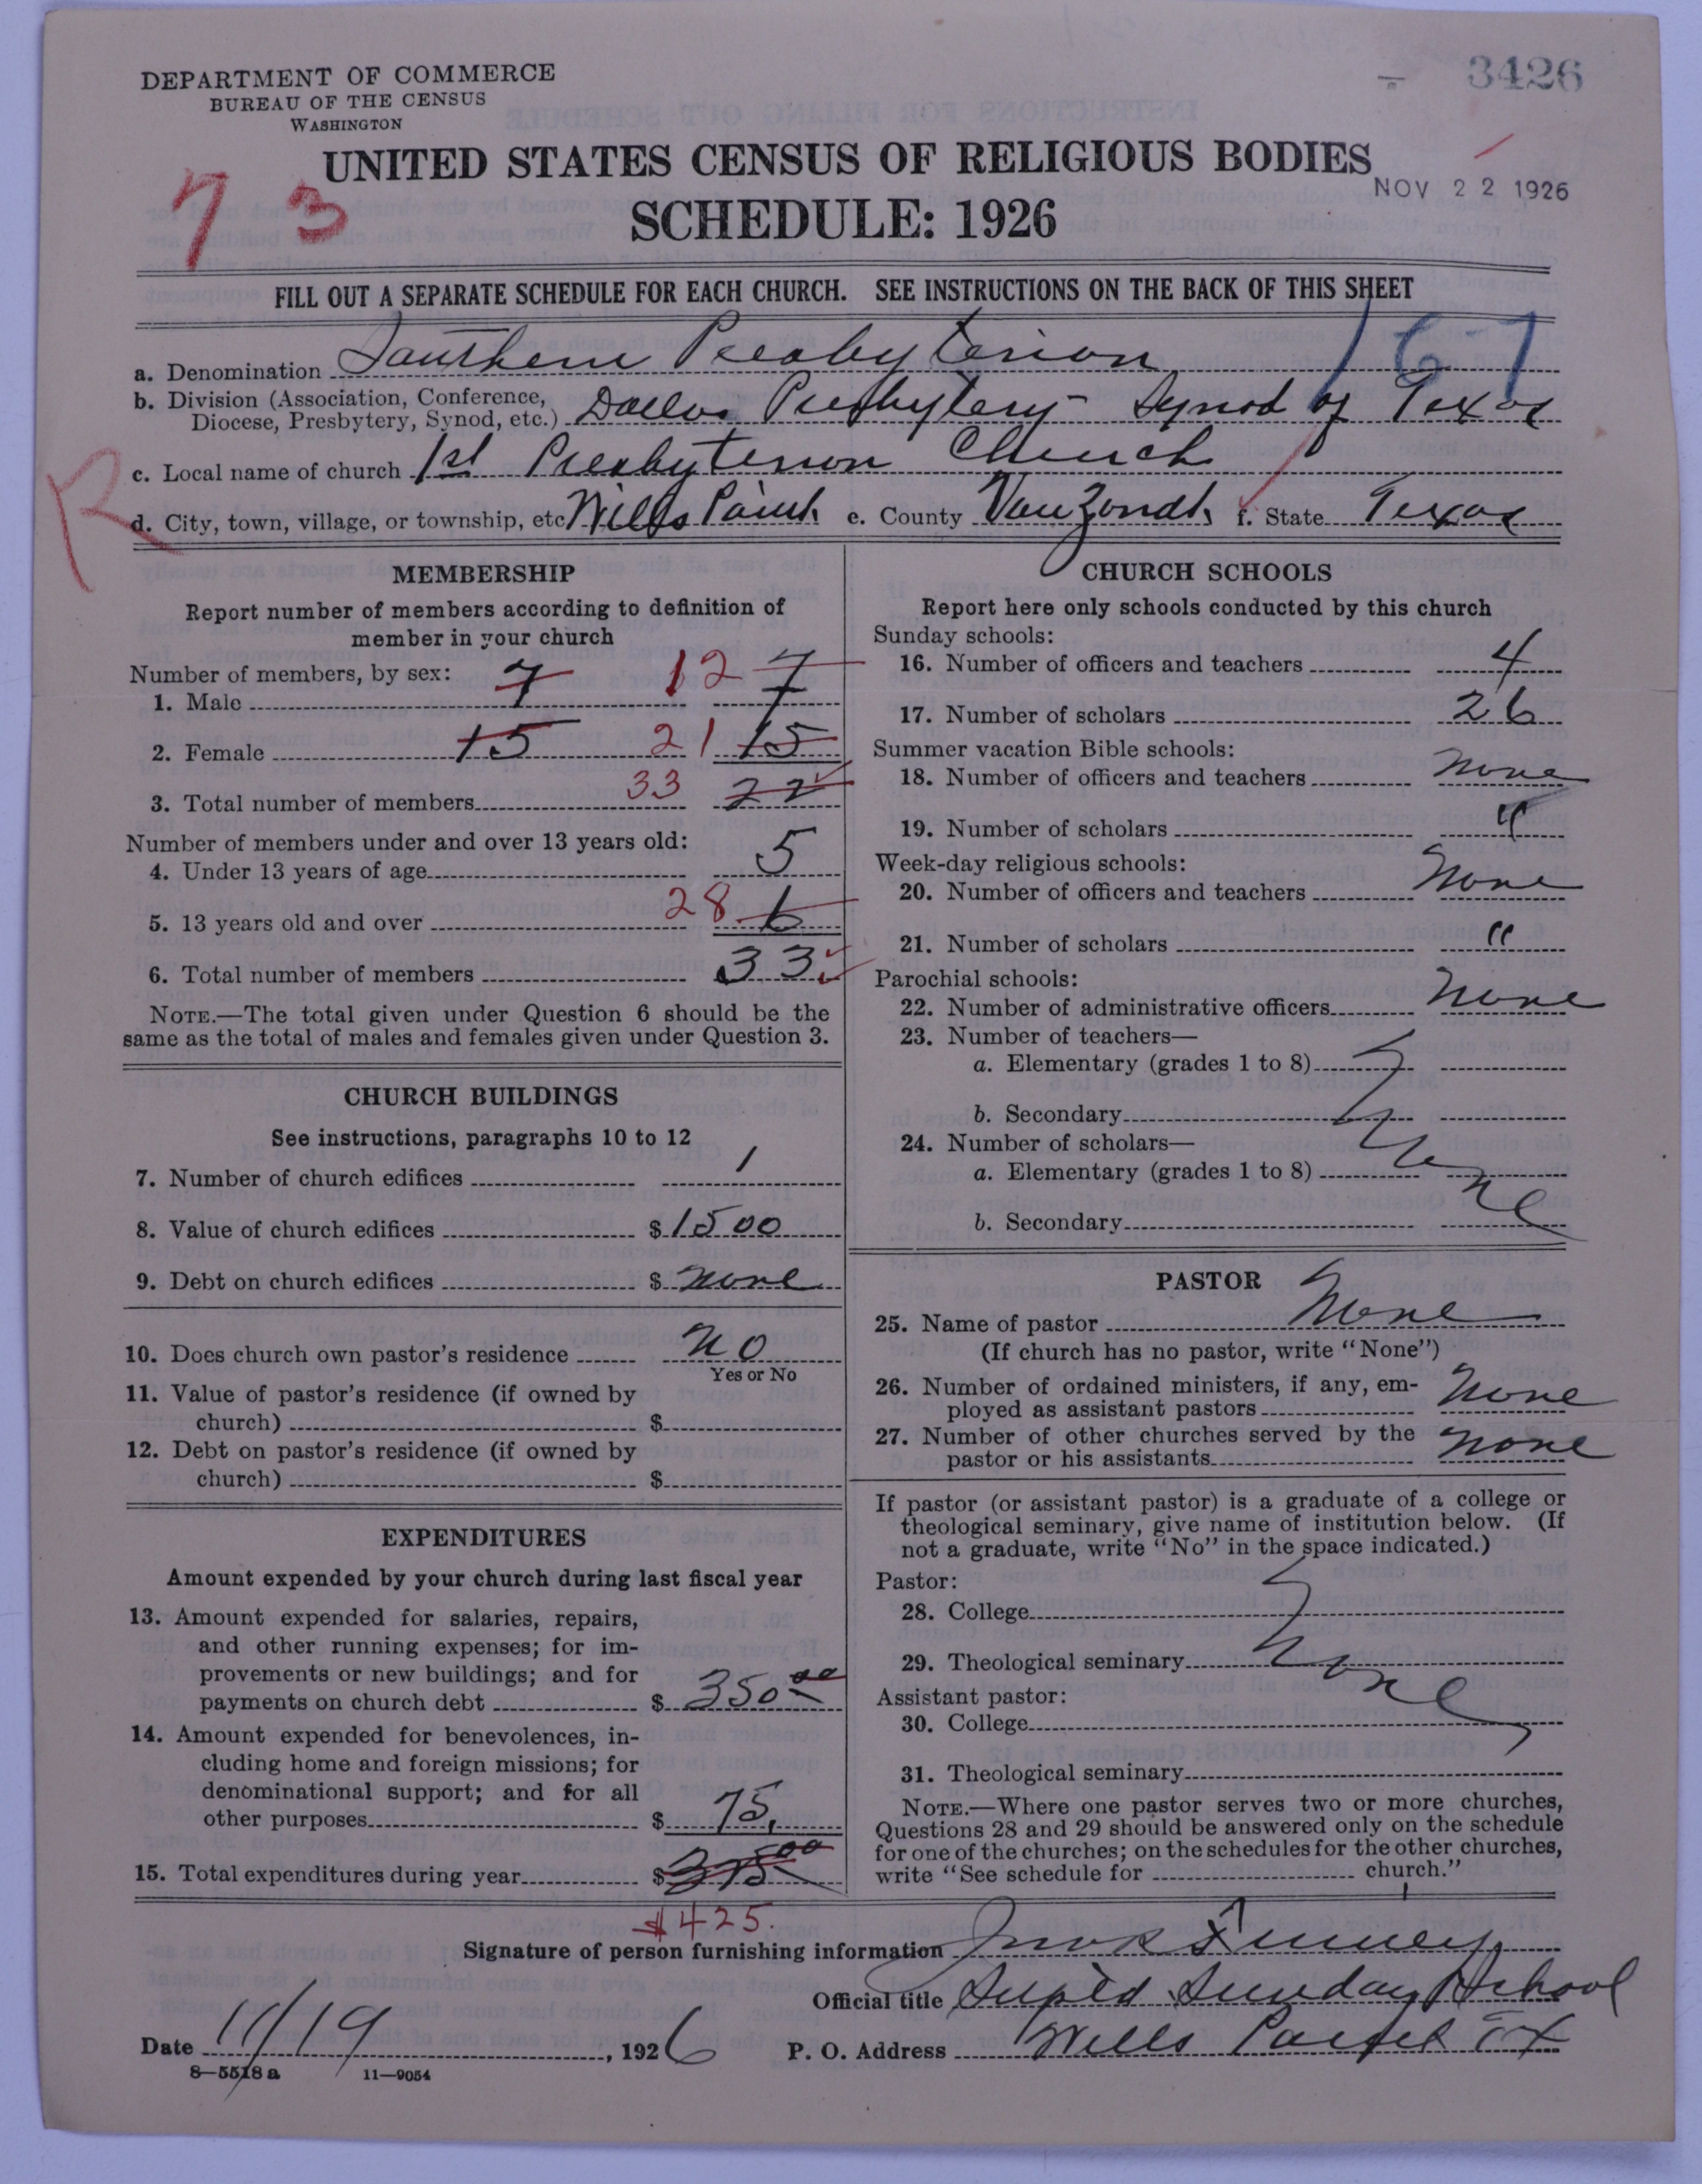 DEPARTMENT OF COMMERCE
BUREAU OF THE CENSUS
WASHINGTON
3426
UNITED STATES CENSUS OF RELIGIOUS BODIES
NOV 22 1926
73
SCHEDULE: 1926
FILL OUT A SEPARATE SCHEDULE FOR EACH CHURCH. SEE INSTRUCTIONS ON THE BACK OF THIS SHEET
167
a. Denomination Southern Presbyterian
b. Division (Association, Conference,
Diocese, Presbytery, Synod, etc.) Dallas Presbytery - Synod of Texas
c. Local name of church 1st Presbyterian Church
R
d. City, town, village, or township, etc. Wills Point e. County Van Zandt f. State Texas
MEMBERSHIP
Report number of members according to definition of
member in your church
Number of members, by sex:
1. Male 7 12 7
2. Female 15 21 15
3. Total number of members 33 22
Number of members under and over 13 years old:
4. Under 13 years of age 5
5. 13 years old and over 28 6
6. Total number of members 33
NOTE.—The total given under Question 6 should be the
same as the total of males and females given under Question 3.
CHURCH BUILDINGS
See instructions, paragraphs 10 to 12
7. Number of church edifices 1
8. Value of church edifices $1500
9. Debt on church edifices $ none
10. Does church own pastor's residence no
Yes or No
11. Value of pastor's residence (if owned by
church) $
12. Debt on pastor's residence (if owned by
church) $
EXPENDITURES
Amount expended by your church during last fiscal year
13. Amount expended for salaries, repairs,
and other running expenses; for im-
provements or new buildings; and for
payments on church debt $ 350 00
14. Amount expended for benevolences, in-
cluding home and foreign missions; for
denominational support; and for all
other purposes $ 75.
15. Total expenditures during year $ 375 00
$425.
CHURCH SCHOOLS
Report here only schools conducted by this church
Sunday schools:
16. Number of officers and teachers 4
17. Number of scholars 26
Summer vacation Bible schools:
18. Number of officers and teachers none
19. Number of scholars "
Week-day religious schools:
20. Number of officers and teachers None
21. Number of scholars "
Parochial schools:
22. Number of administrative officers None
23. Number of teachers—
a. Elementary (grades 1 to 8)
b. Secondary
24. Number of scholars—
a. Elementary (grades 1 to 8)
None
b. Secondary
PASTOR
25. Name of pastor None
(If church has no pastor, write "None")
26. Number of ordained ministers, if any, em-
ployed as assistant pastors None
27. Number of other churches served by the
pastor or his assistants none
If pastor (or assistant pastor) is a graduate of a college or
theological seminary, give name of institution below. (If
not a graduate, write "No" in the space indicated.)
Pastor:
28. College
29. Theological seminary
None
Assistant pastor:
30. College
31. Theological seminary
NOTE.—Where one pastor serves two or more churches,
Questions 28 and 29 should be answered only on the schedule
for one of the churches; on the schedules for the other churches,
write "See schedule for church."
Signature of person furnishing information
Official title Sunday School
Date 11/19, 1926 P. O. Address Wills Point TX
8—5518 a 11—9054